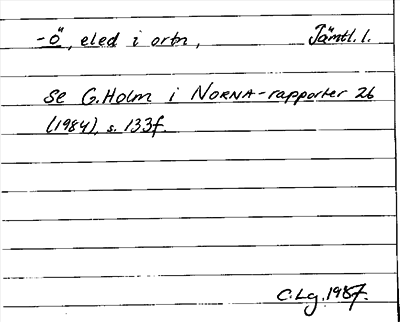 -ö, eled i ortn, Jämtl. l.
se G. Holm i NORNA-rapporter 26
(1984), s. 133f.
C. Lg. 1987.